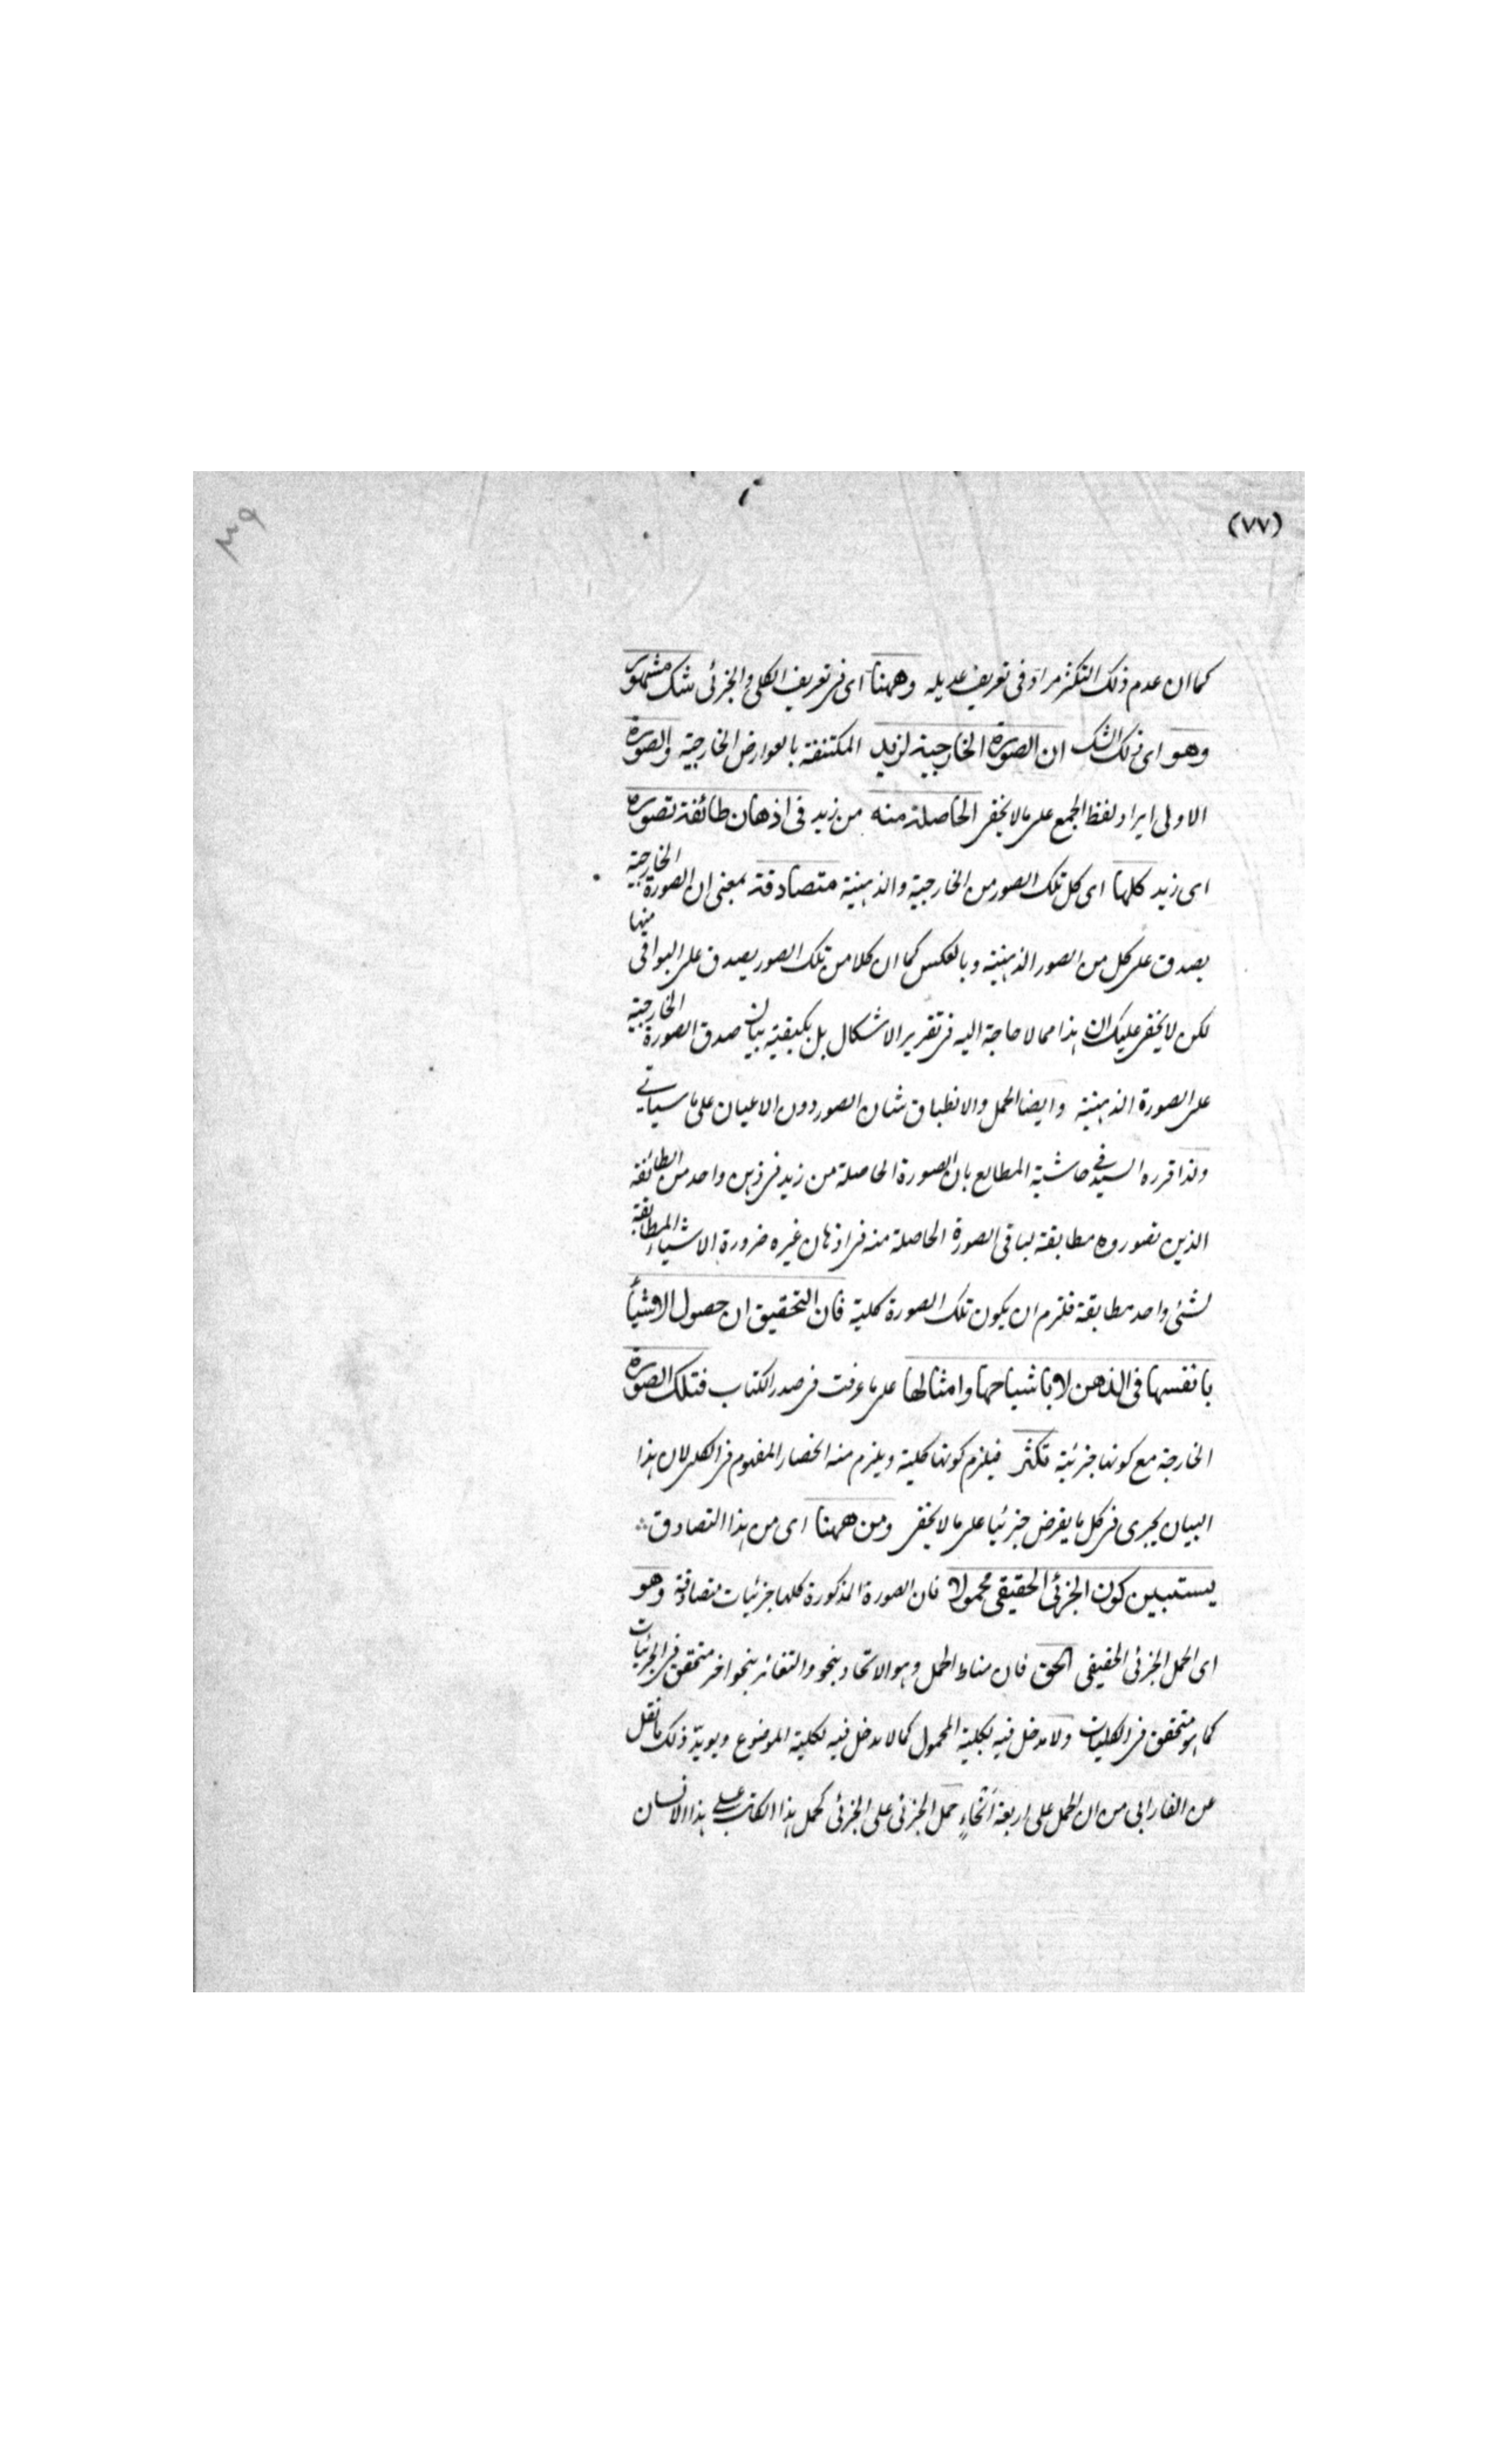 (٧٧)
كما ان عدم ذلك التكثر مراد فى تعريف عديله وههنا اى فى تعريف الكلى والجزئى شك مشهور
وهو اى ذلك الشك ان الصورة الخارجية لزيد المكتنفة بالعوارض الخارجية والصورة
الاولى ايراد لفظ الجمع على ما لا يخفى الحاصلة منه من زيد فى اذهان طائفة تصوره
اى زيد كلها اى كل تلك الصور من الخارجية والذهنية متصادقة بمعنى ان الصورة الخارجية
يصدق على كل من الصور الذهنية وبالعكس كما ان كلا من تلك الصور يصدق على البواقى منها
لكن لا يخفى عليك ان هذا مما لا حاجة اليه فى تقرير الاشكال بل يكفيه بيان صدق الصورة الخارجية
على الصورة الذهنية وايضا الحمل والانطباق شان الصور دون الاعيان على ما سياتى
ولذا قرره السيد فى حاشية المطالع بان الصورة الحاصلة من زيد فى ذهن واحد من الطائفة
الذين تصوروه مطابقة لباقى الصورة الحاصلة منه فى اذهان غيره ضرورة ان الاشياء المطابقة
لشئ واحد مطابقة فلزم ان يكون تلك الصورة كلية فان التحقيق ان حصول الاشياء
بانفسها فى الذهن لا باشباحها وامثالها على ما عرفت فى صدر الكتاب فتلك الصورة
الخارجة مع كونها جزئية تكثر فيلزم كونها كلية ويلزم منه انحصار المفهوم فى الكلى لان هذا
البيان يجرى فى كل ما يفرض جزئيا على ما لا يخفى ومن ههنا اى من هذا التصادق
يستبين كون الجزئى الحقيقى محمولا فان الصورة المذكورة كلها جزئيات متصادقة وهو
اى الحمل الجزئى الحقيقى الحق فان مناط الحمل وهو الاتحاد بنحو والتغائر بنحو اخر متحقق فى الجزئيات
كما هو متحقق فى الكليات ولا مدخل فيه لكلية المحمول كما لا مدخل فيه لكلية الموضوع ويويد ذلك ما نقل
عن الفارابى من ان الحمل على اربعة انحاء حمل الجزئى على الجزئى كحمل هذا الكاتب على هذا الانسان